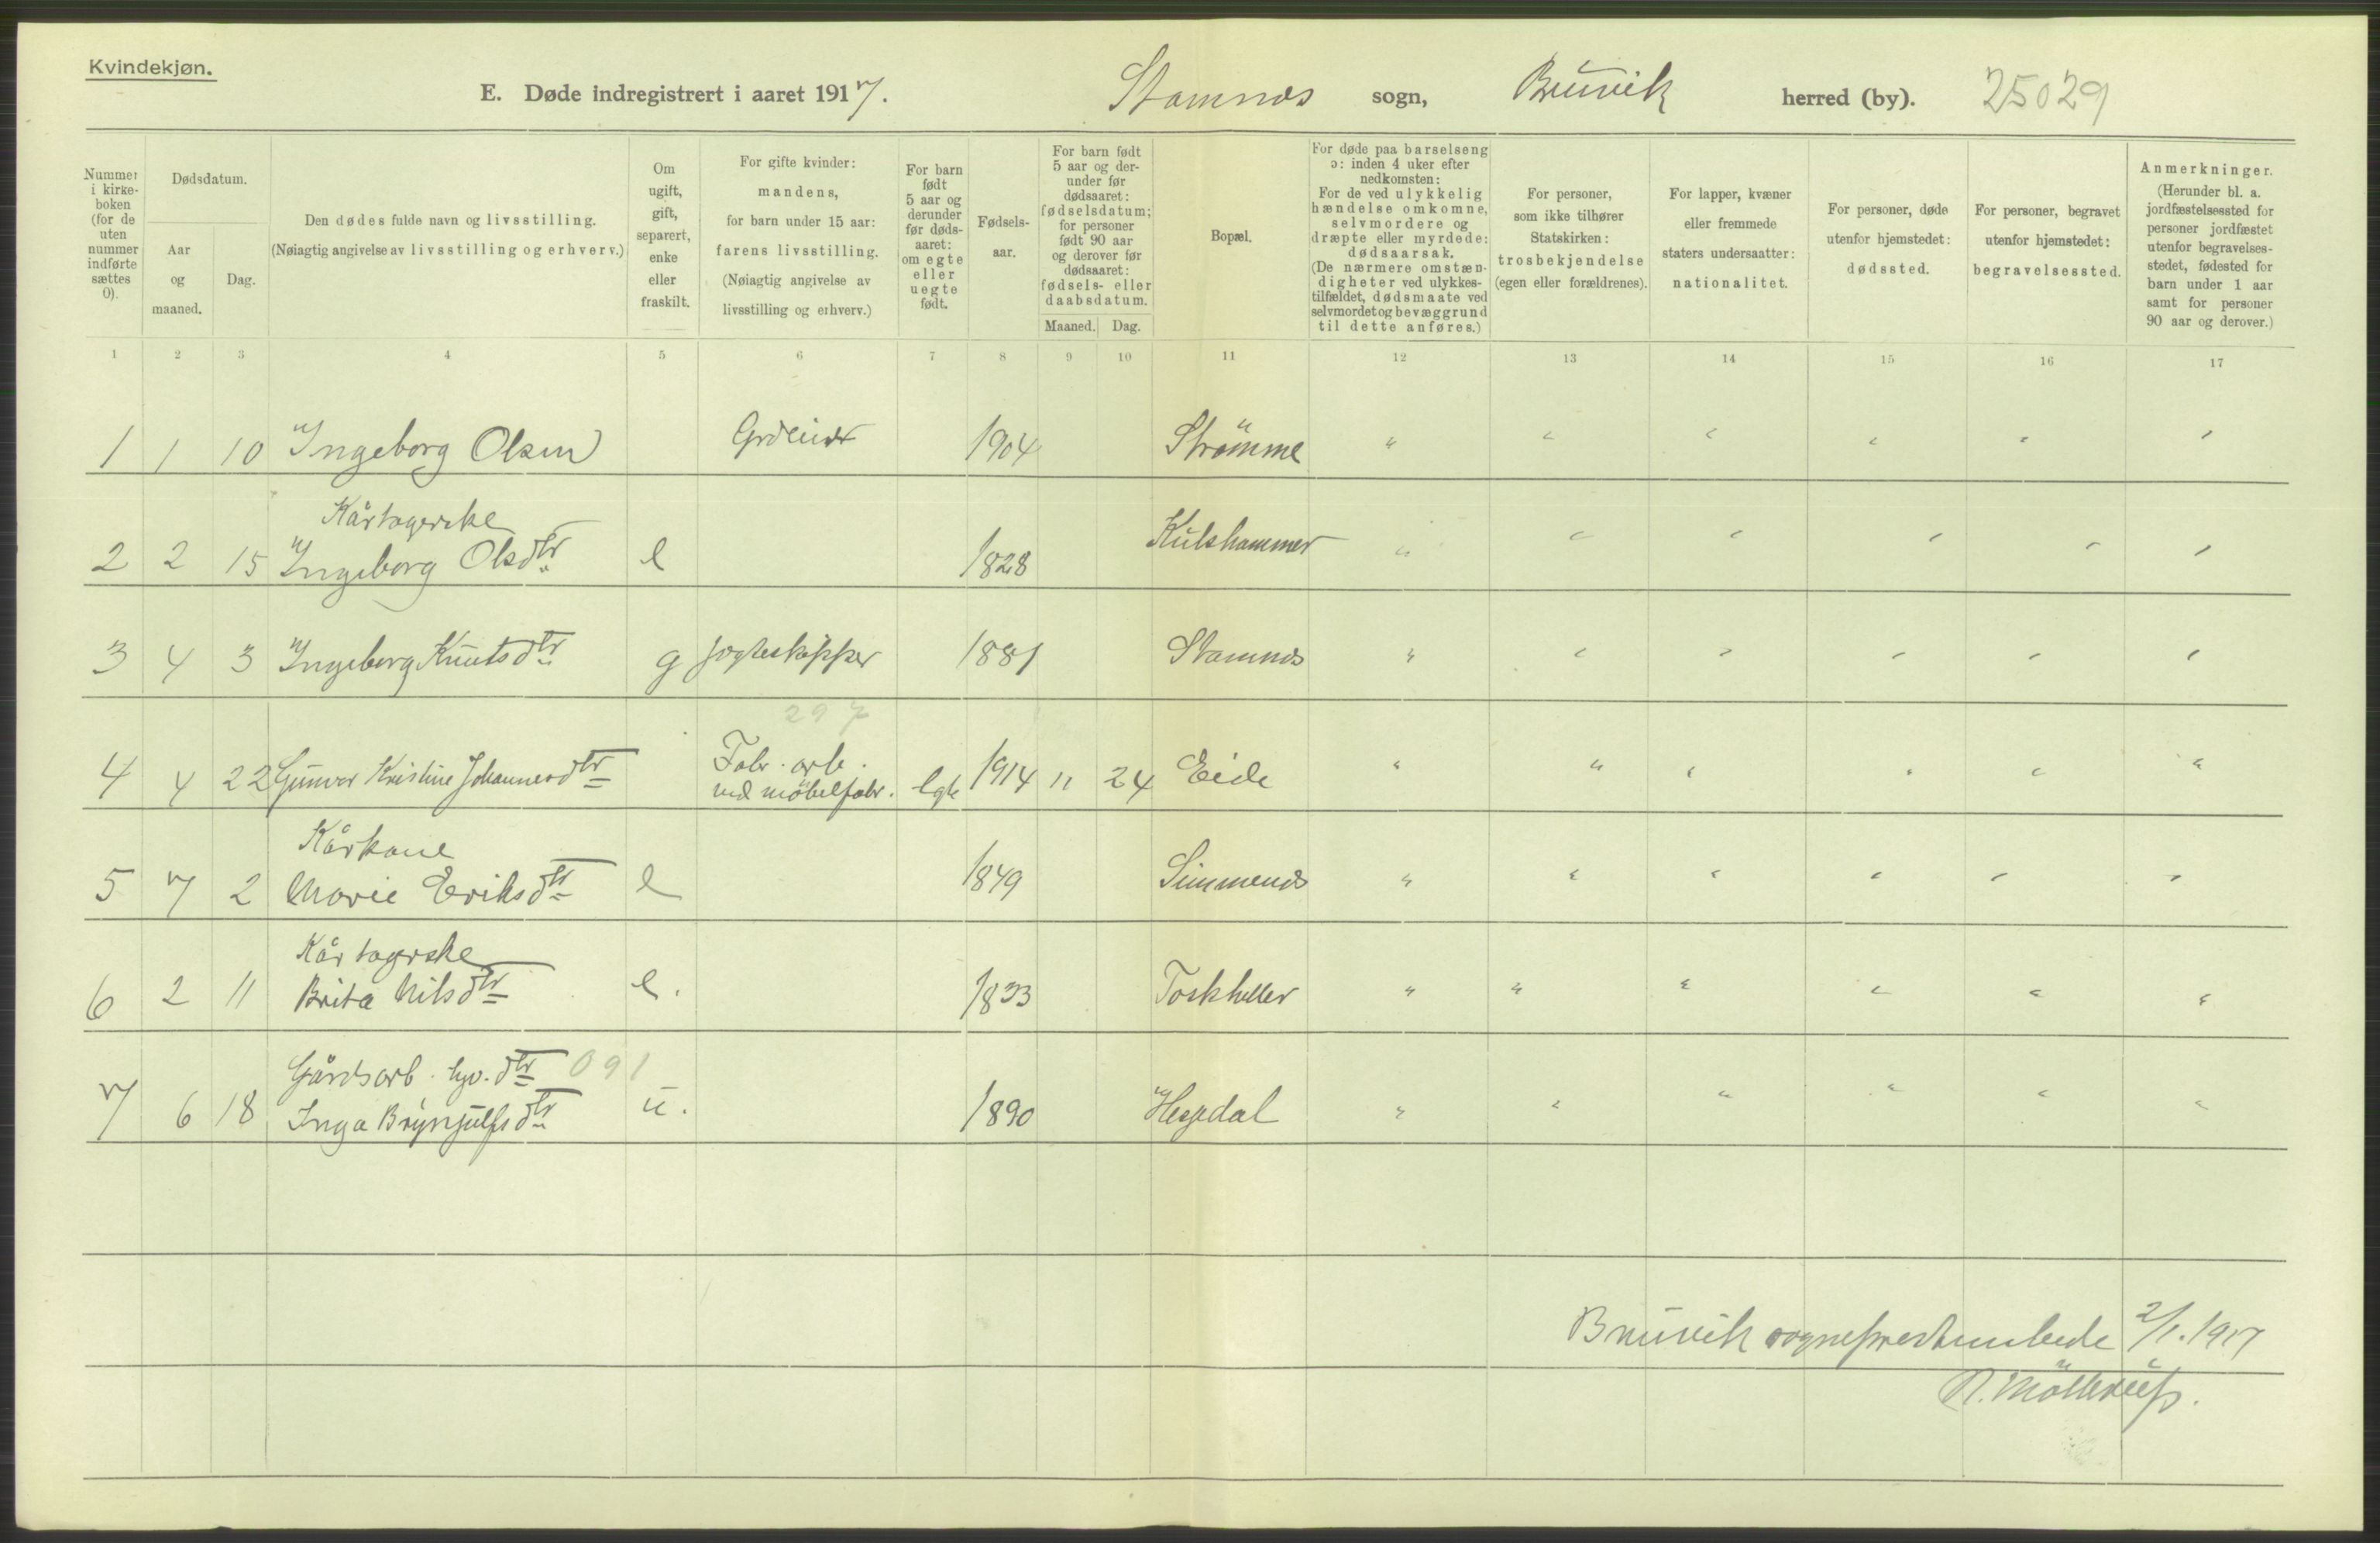 Kvindekjøn.
E. Døde indregistrert i aaret 1917. Stamnes sogn, Bruvik herred (by). 25029
Nummer i kirkeboken (for de uten nummer indførte sættes 0).
Dødsdatum.
Aar og maaned.
Dag.
Den dødes fulde navn og livsstilling.
(Nøiagtig angivelse av livsstilling og erhverv.)
Om ugift, gift, separert, enke eller fraskilt.
For gifte kvinder: mandens, for barn under 15 aar: farens livsstilling. (Nøiagtig angivelse av livsstilling og erhverv.)
For barn født 5 aar og derunder før dødsaaret: om egte eller uegte født.
Fødselsaar.
For barn født 5 aar og derunder før dødsaaret: fødselsdatum; for personer født 90 aar og derover før dødsaaret: fødsels- eller daabsdatum.
Maaned. Dag.
Bopæl.
For døde paa barselseng ɔ: inden 4 uker efter nedkomsten: For de ved ulykkelig hændelse omkomne, selvmordere og dræpte eller myrdede: dødsaarsak. (De nærmere omstændigheter ved ulykkestilfældet, dødsmaate ved selvmordet og bevæggrund til dette anføres.)
For personer, som ikke tilhører Statskirken: trosbekjendelse (egen eller forældrenes).
For lapper, kvæner eller fremmede staters undersaatter: nationalitet.
For personer, døde utenfor hjemstedet: dødssted.
For personer, begravet utenfor hjemstedet: begravelsessted.
Anmerkninger. (Herunder bl. a. jordfæstelsessted for personer jordfæstet utenfor begravelsesstedet, fødested for barn under 1 aar samt for personer 90 aar og derover.)
1 2 3 4 5 6 7 8 9 10 11 12 13 14 15 16 17
1 1 10 Ingeborg Olsen Grdeier 1904 Strömme " " " " " "
Kårtagerske
2 2 15 Ingeborg Olsdtr e 1828 Kulshammer " " " " " "
3 4 3 Ingeborg Knutsdtr g jogteskipper 1881 Stamnes " " " " " "
297
4 4 22 Gunvor Kristine Johannesdtr Fabr. arb. ved möbelfabr. egte 1914 11 24 Eide " " " " " "
Kårkone
5 7 2 Marie Eriksdtr e 1849 Simmenes " " " " " "
Kårtagerske
6 2 11 Brita Nilsdtr e. 1833 Toskheller " " " " " "
Gårdsarb. hjv. dtr 091
7 6 18 Inga Brynjulfsdtr u. 1890 Hesjedal " " " " " "
Bruvik sogneprestembede 2/1. 1917